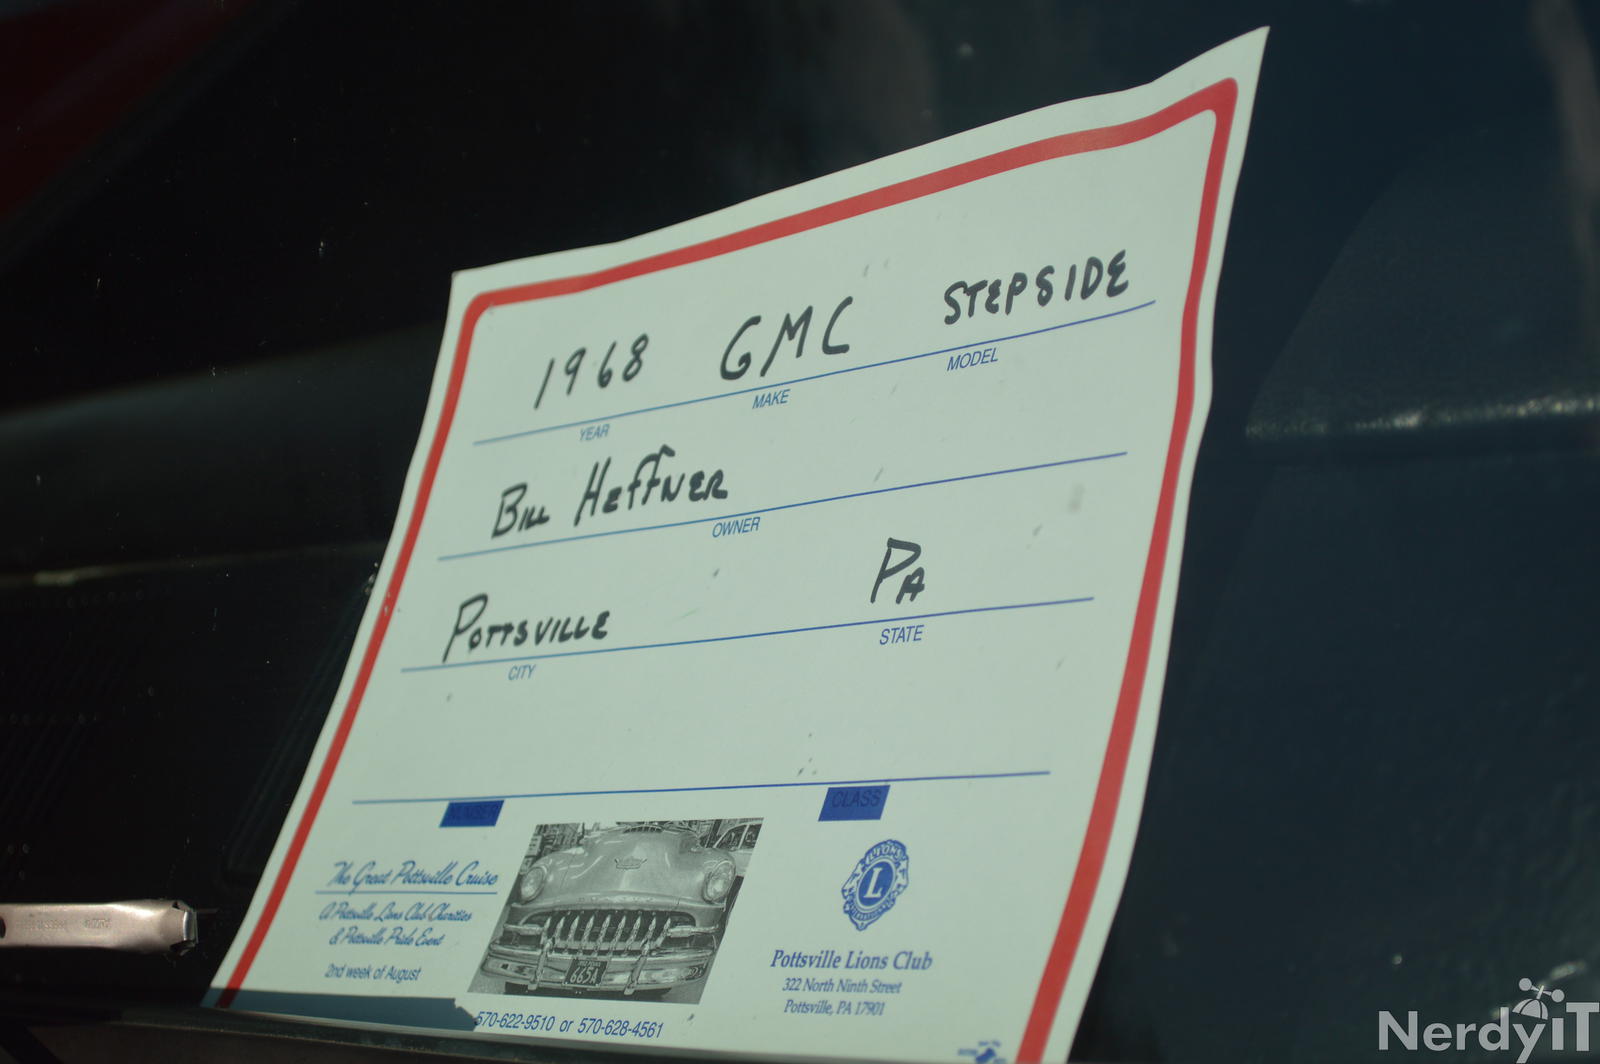 1968 GMC STEPSIDE
YEAR MAKE MODEL
Bill Heffner
OWNER
Pottsville PA
CITY STATE
NUMBER CLASS
The Great Pottsville Cruise
A Pottsville Lions Club Charities
& Pottsville Pride Event
2nd week of August
665A
LIONS
L
INTERNATIONAL
Pottsville Lions Club
322 North Ninth Street
Pottsville, PA 17901
570-622-9510 or 570-628-4561
NerdyiT